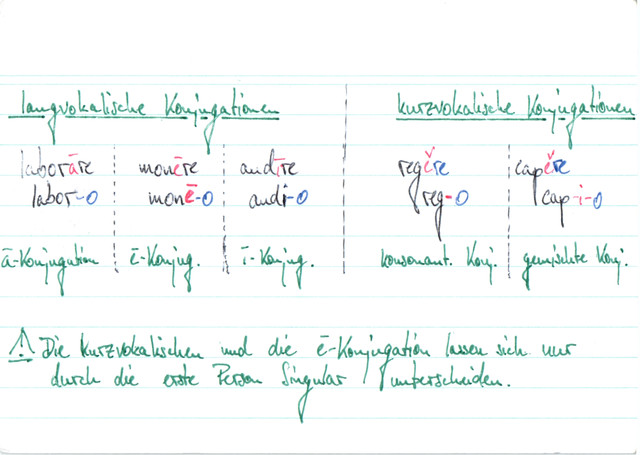 langvokalische Konjugationen kurzvokalische Konjugationen
laborāre monēre audīre regĕre capĕre
labor-o monē-o audi-o reg-o cap-i-o
ā-Konjugation ē-Konjug. ī-Konjug. konsonant. Konj. gemischte Konj.
⚠ Die kurzvokalischen und die ē-Konjugation lassen sich nur
durch die erste Person Singular unterscheiden.